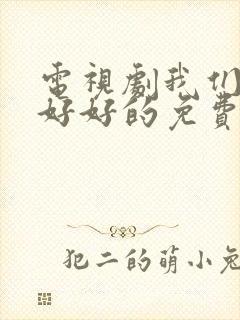 電視劇我们
好好的免費
犯二的萌小兔